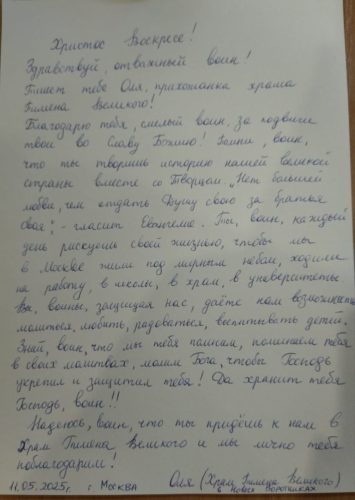 Христос Воскресе!
Здравствуй, отважный воин!
Пишет тебе Оля, прихожанка храма
Пимена Великого!
Благодарю тебя, смелый воин, за подвиги
твои во Славу Божию! Помни, воин,
что ты творишь историю нашей великой
страны вместе со Творцом. „Нет большей
любви, чем отдать Душу свою за братья
своя", - гласит Евангелие. Ты, воин, каждый
день рискуешь своей жизнью, чтобы мы
в Москве жили под мирным небом, ходили
на работу, в школы, в храм, в университеты
Вы, воины, защищая нас, даёте нам возможность
молиться, любить, радоваться, воспитывать детей.
Знай, воин, что мы тебя помним, поминаем тебя
в своих молитвах, молим Бога, чтобы Господь
укрепил и защитил тебя! Да хранит тебя
Господь, воин!!
Надеюсь, воин, что ты придёшь к нам в
Храм Пимена Великого и мы лично тебя
поблагодарим!
11.05.2025г. г. Москва Оля (Храм Пимена Великого)
в Новых Воротниках